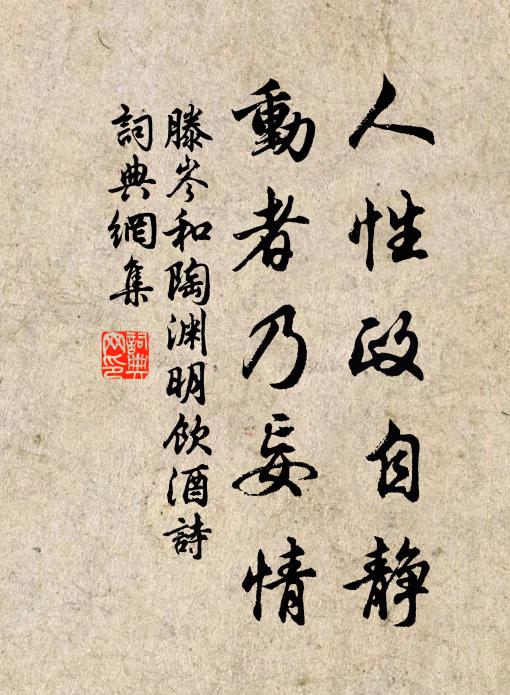 人性政自静
動者乃妄情
滕岑和陶渊明飲酒詩
詞典網集
詞典网印